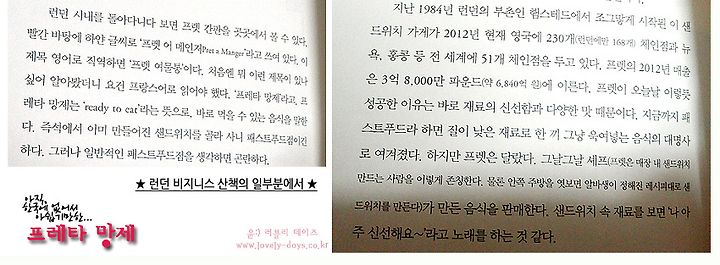 런던 시내를 돌아다니다 보면 프렛 간판을 곳곳에서 볼 수 있다.
빨간 바탕에 하얀 글씨로 '프렛 어 메인저Pret a Manger'라고 쓰여 있다. 이
제목 영어로 직역하면 '프렛 여물통'이다. 처음엔 뭐 이런 제목이 있나
싶어 알아봤더니 요건 프랑스어로 읽어야 했다. '프레타 망제'라고. 프
레타 망제는 'ready to eat'라는 뜻으로, 바로 먹을 수 있는 음식을 말한
다. 즉석에서 이미 만들어진 샌드위치를 골라 사니 패스트푸드점이긴
하다. 그러나 일반적인 페스트푸드점을 생각하면 곤란하다.
★ 런던 비지니스 산책의 일부분에서 ★
아직,
한국에 없어서
아쉽기만한...
프레타 망제
글:) 러블리 데이즈
www.lovely-days.co.kr
지난 1984년 런던의 부촌인 햄스테드에서 조그맣게 시작된 이 샌
드위치 가게가 2012년 현재 영국에 230개(런던에만 168개) 체인점과 뉴
욕, 홍콩 등 전 세계에 51개 체인점을 두고 있다. 프렛의 2012년 매출
은 3억 8,000만 파운드(약 6,840억 원)에 이른다. 프렛이 오늘날 이렇듯
성공한 이유는 바로 재료의 신선함과 다양한 맛 때문이다. 지금까지 패
스트푸드라 하면 질이 낮은 재료로 한 끼 그냥 욱여넣는 음식의 대명사
로 여겨졌다. 하지만 프렛은 달랐다. 그날그날 셰프(프렛은 매장 내 샌드위치
만드는 사람을 이렇게 존칭한다. 물론 안쪽 주방을 엿보면 알바생이 정해진 레시피대로 샌
드위치를 만든다)가 만든 음식을 판매한다. 샌드위치 속 재료를 보면 '나 아
주 신선해요~'라고 노래를 하는 것 같다.